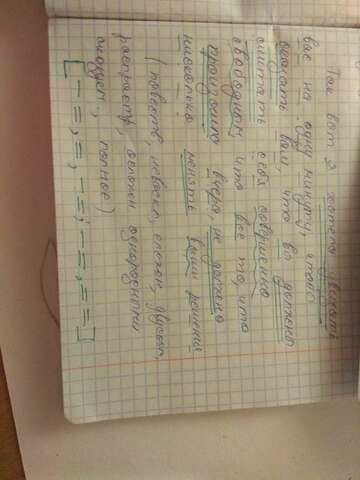 Так вот я хотела увидеть
вас на одну минуту, чтобы
сказать вам, что вы должны
считать себя совершенно
свободным, что все то, что
произошло вчера, не должно
нисколько менять ваши решения
(повеств, невоскл, сложн, двусост,
распростр, ослож однородными
сказуем, полное)
[- =, =, - =; - =, = =]